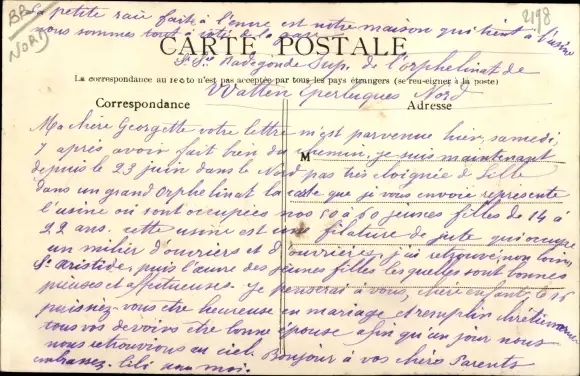 BP
NORD
2198
la petite raie fait à l'encre est notre maison qui tient à l'usine
nous sommes tout à côté de la gare
CARTE POSTALE
Sr St Radegonde Sup. de l'orphelinat de
La correspondance au recto n'est pas acceptée par tous les pays étrangers (se renseigner à la poste)
Watten Eperlecques Nord
Correspondance
Adresse
Ma chère Georgette votre lettre m'est parvenue hier, samedi,
7 après avoir fait bien du chemin, je suis maintenant
M
depuis le 23 juin dans le Nord pas très éloignée de Lille
dans un grand Orphelinat la carte que je vous envoie représente
l'usine où sont occupées nos 50 à 60 jeunes filles de 14 à
22 ans. cette usine est une filature de jute qui occupe
un milier d'ouvriers et d'ouvrières, j'ai retrouvé, non loin,
St Aristide, puis l'œuvre des jeunes filles lesquelles sont bonnes
pieuses et affectueuses. Je penserai à vous, chère enfant, le 16
puissiez-vous être heureuse en mariage et remplir chrétiennement
tous vos devoirs être bonne épouse afin qu'un jour nous
nous retrouvions au ciel Bonjour à vos chers Parents
embrassez Lili pour moi.